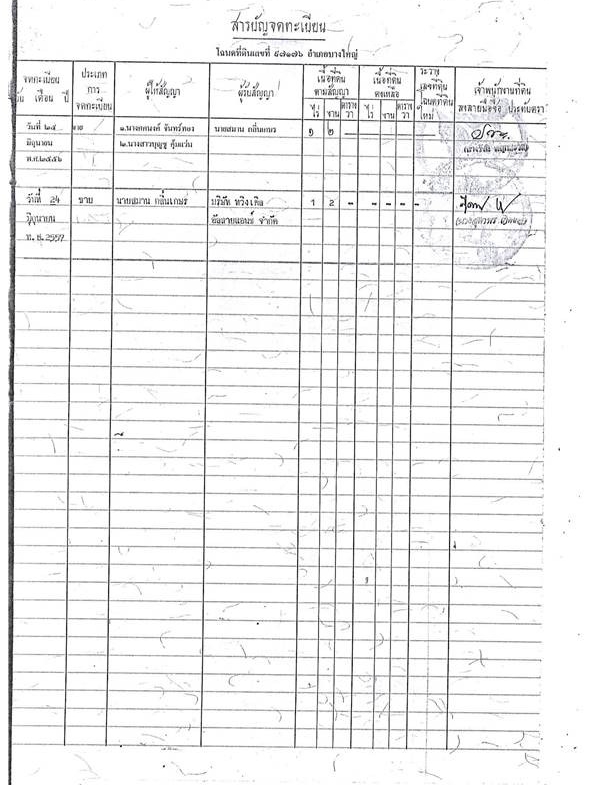 สารบัญจดทะเบียน
โฉนดที่ดินเลขที่ ๕๗๑๗๖ อำเภอบางใหญ่
จดทะเบียน
วัน เดือน ปี
ประเภท
การ
จดทะเบียน
ผู้ให้สัญญา
ผู้รับสัญญา
เนื้อที่ดิน
ตามสัญญา
ไร่ งาน ตาราง
วา
เนื้อที่ดิน
คงเหลือ
ไร่ งาน ตาราง
วา
ระวาง
เลขที่ดิน
โฉนดที่ดิน
ใหม่
เจ้าพนักงานที่ดิน
ลงลายมือชื่อ ประทับตรา
วันที่ ๒๔
มิถุนายน
พ.ศ.๒๕๕๖
ขาย
๒.นางสาวบุญชู
นายสมาน กลิ่นเกษร
๑ ๒ - - - - -
วันที่ 24
มิถุนายน
พ.ศ.2557
ขาย
นายสมาน กลิ่นเกษร
บริษัท
จำกัด
1 2 - - - - -